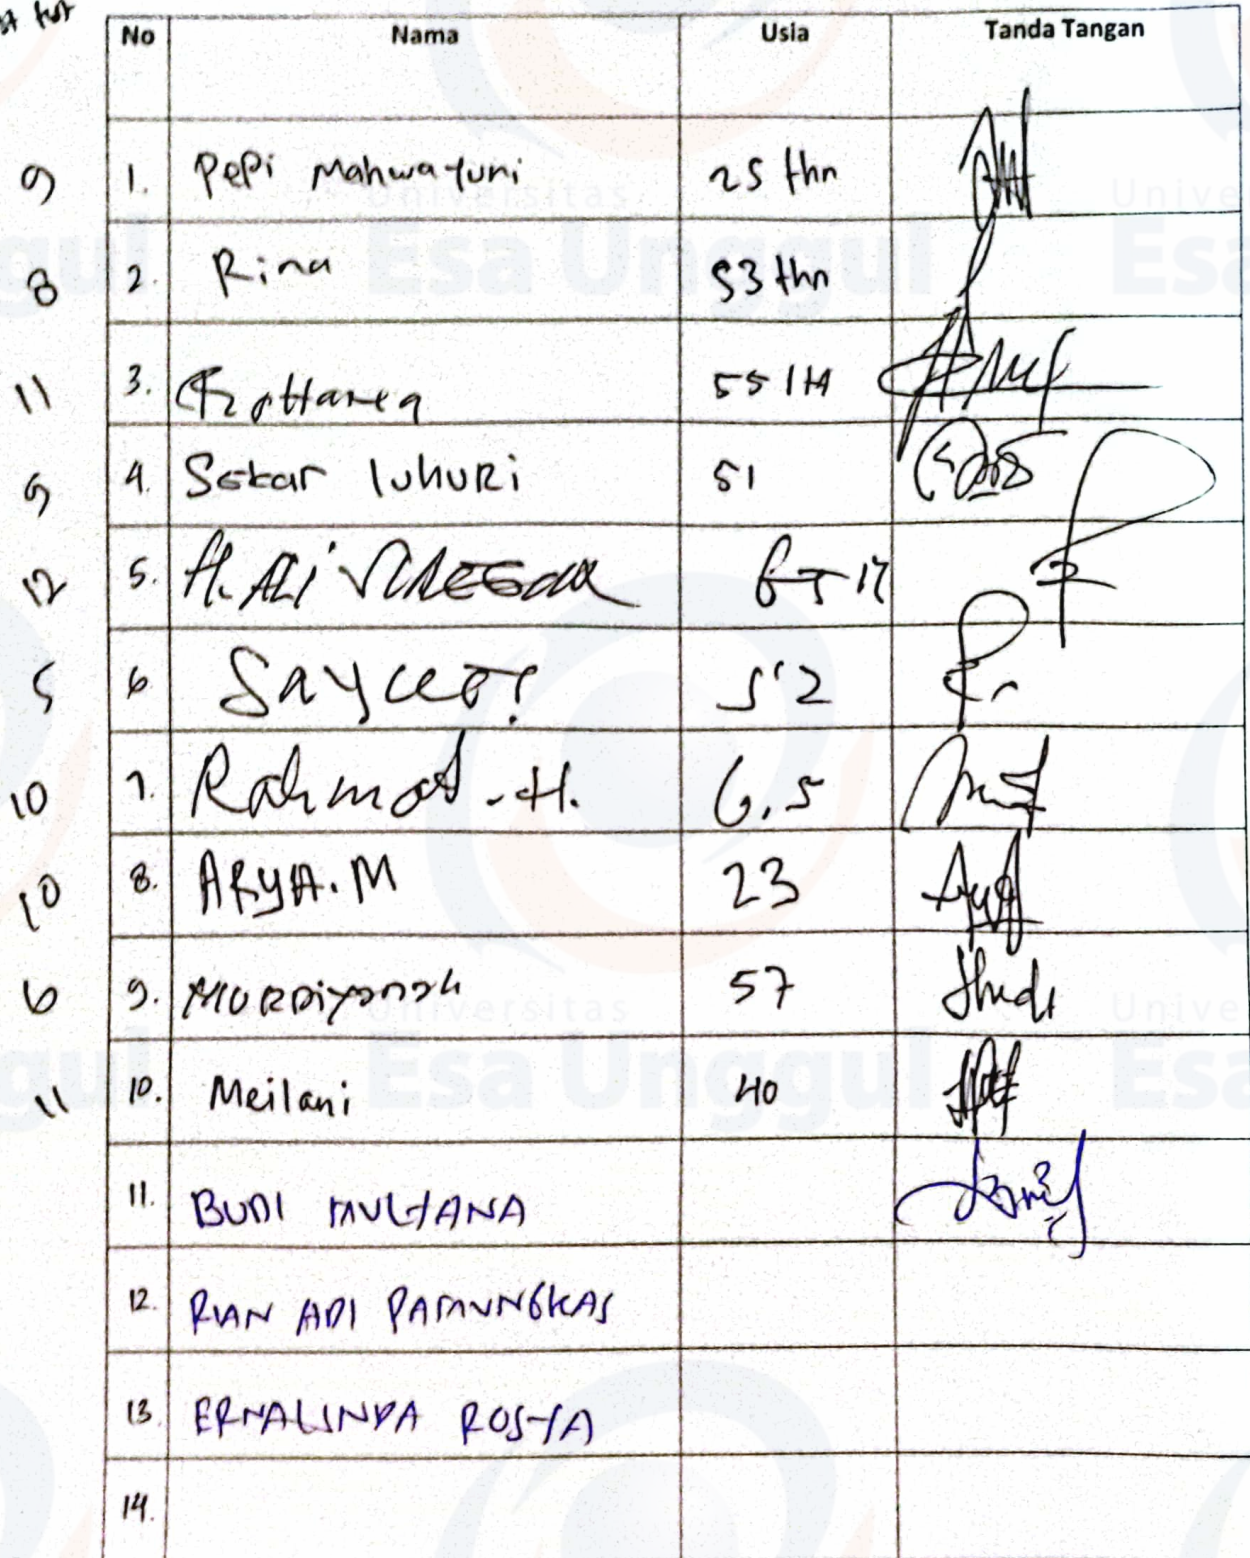 No Nama Usia Tanda Tangan
9 1. Pepi Mahwatuni 25 thn
8 2. Rina 53 thn
11 3. 55
9 4. Sekar luhuri 51
12 5. H. Ali
5 6 52
10 7. Rahmat. H. 6.5
10 8. ARYA. M 23
6 9. MURDiyansh 57
11 10. Meilani 40
11. BUDI MULYANA
12. RIAN ADI PAMUNGKAS
13. ERNALINDA ROSYA
14.
Universitas
Esa Unggul
Universitas
Esa Unggul